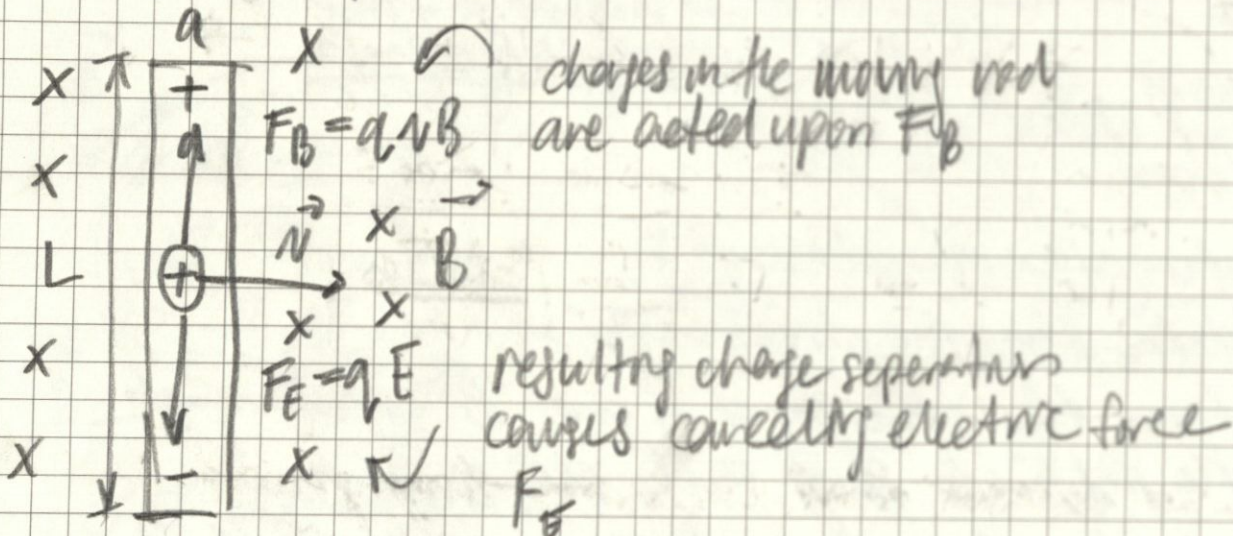 a
X X charges in the moving rod
+ F_B = qvB are acted upon F_B
q
X
v⃗ X B⃗
L +
X X
X F_E = qE resulting charge seperation
causes canceling electric force
X - X F_E